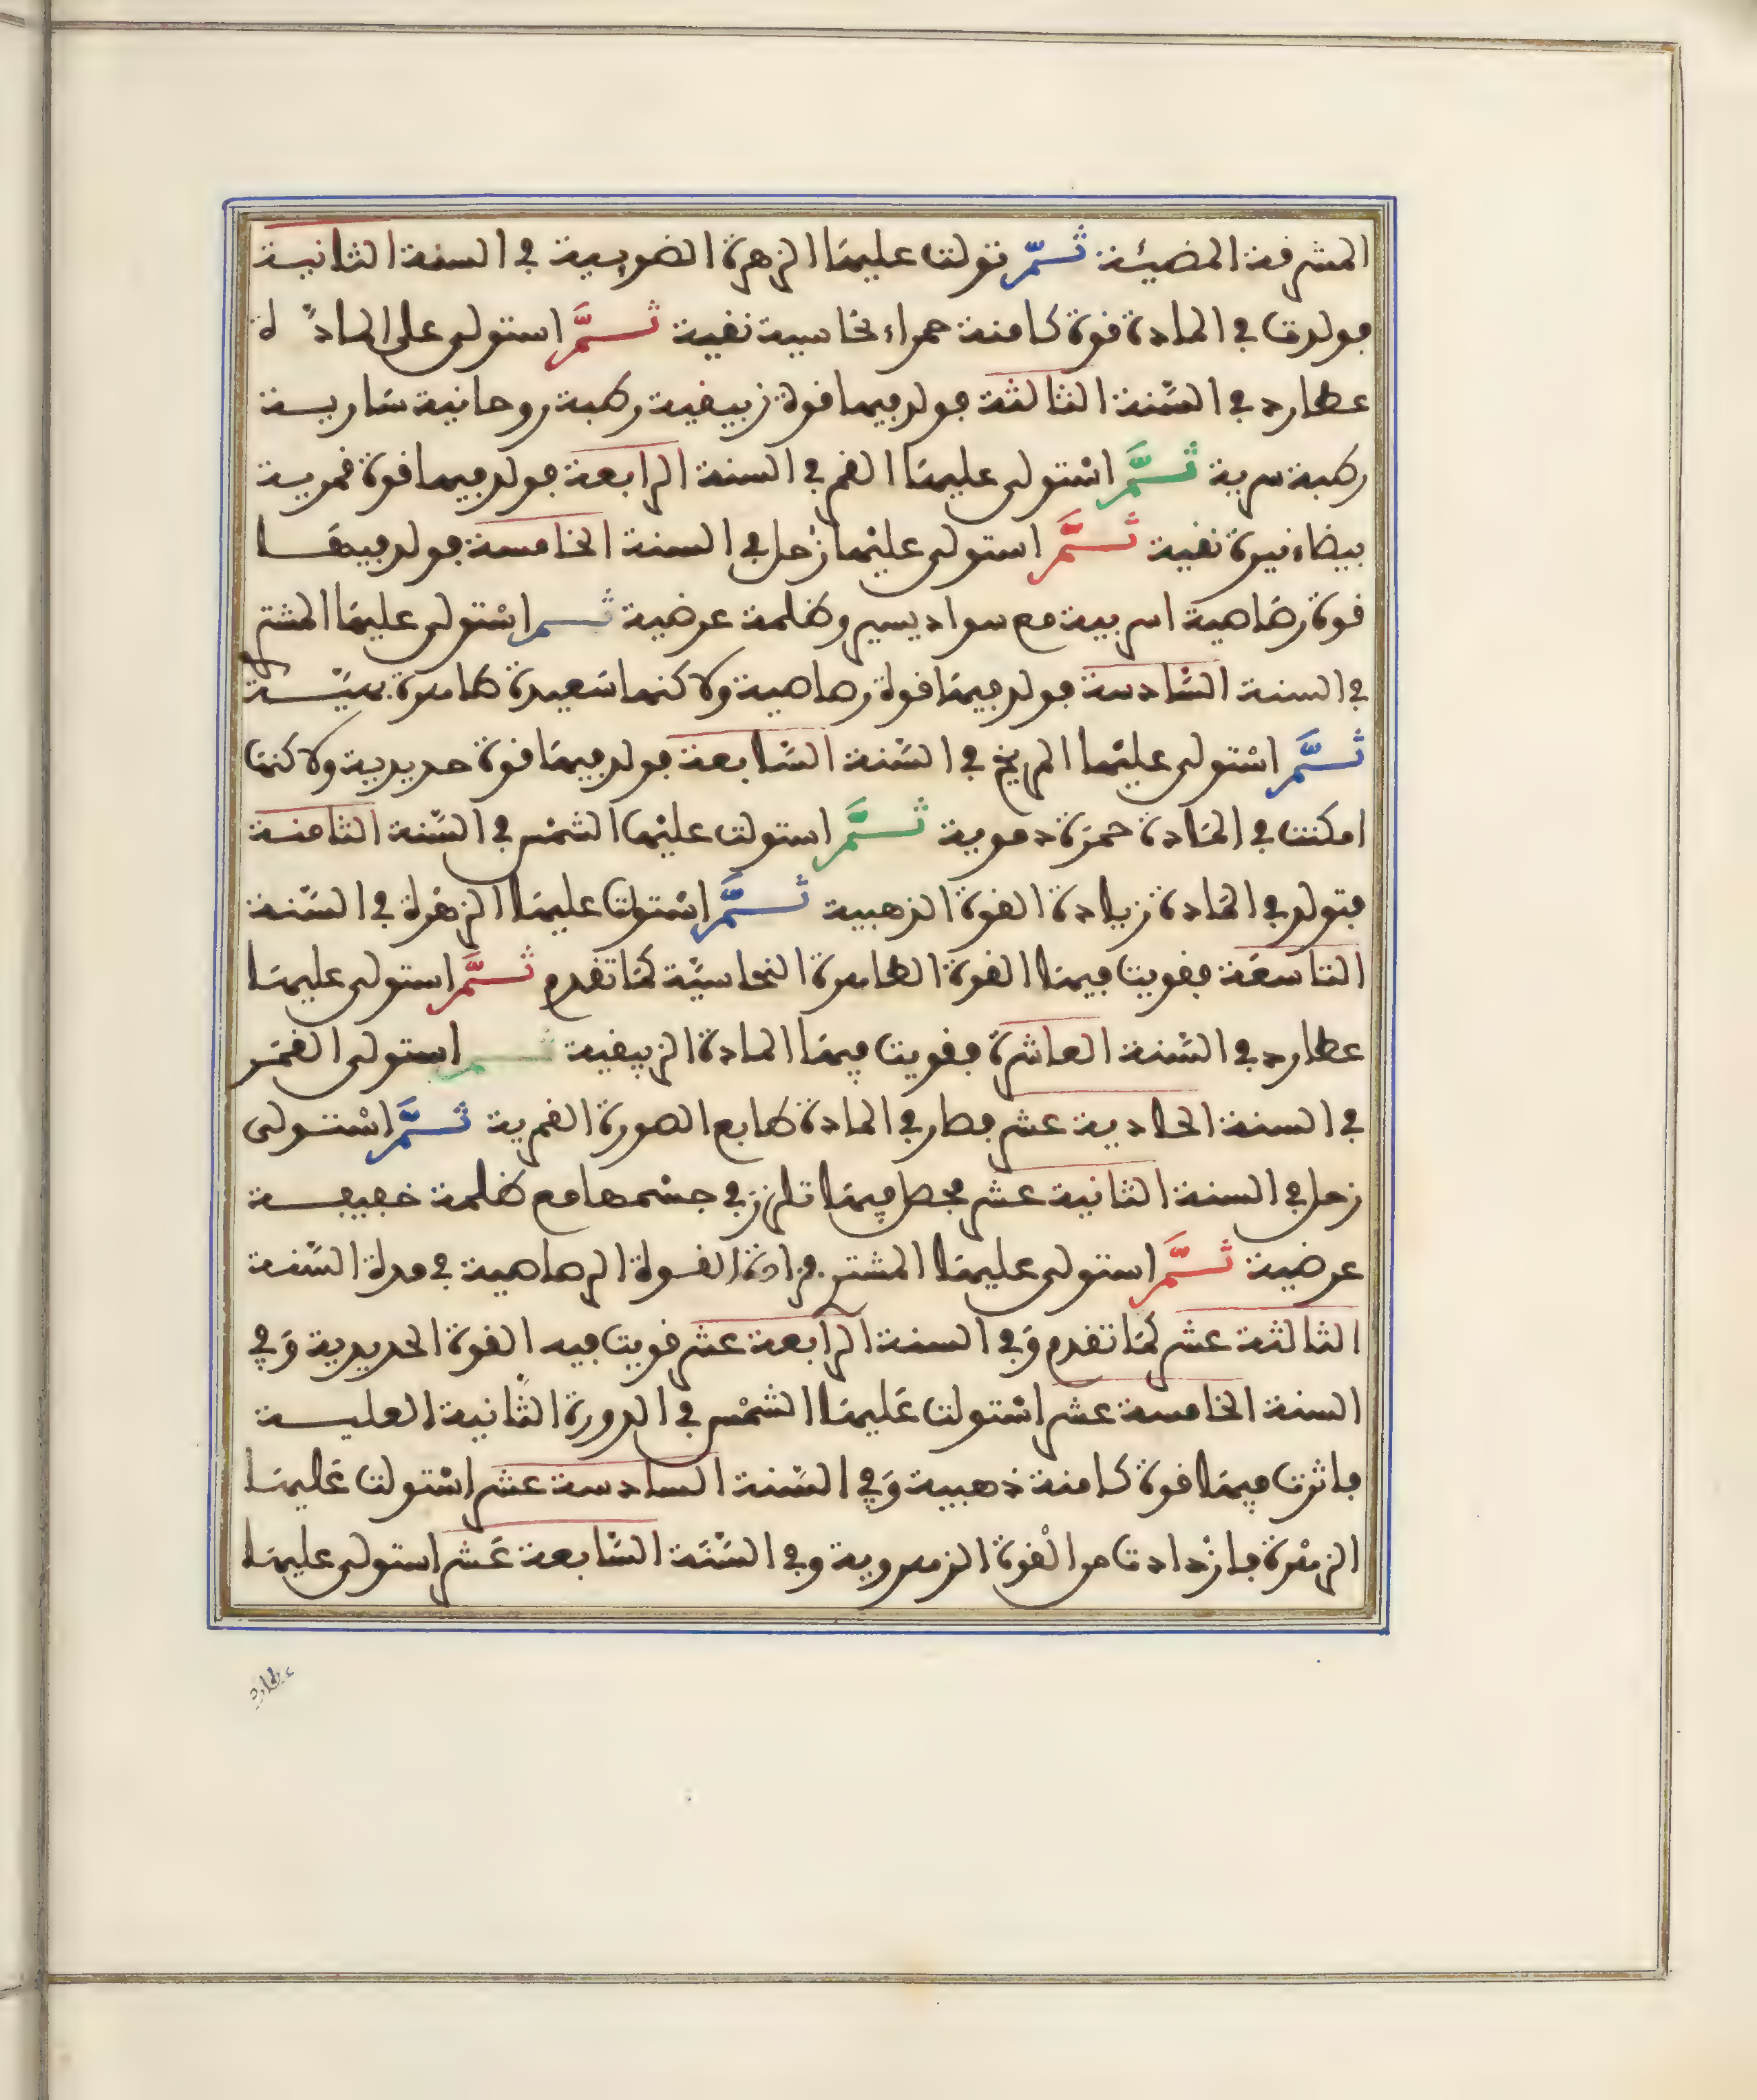 المشرفة المضيئة ثم تولت عليها الزهرة الضوية في السنة الثانية
فولدت في المادة قوة كامنة حمراء نحاسية نقية ثم استولى على المادة
عطارد في السنة الثالثة فولد فيها قوة زيبقية رطبة روحانية سارية
رطبة سرية ثم استولى عليها القمر في السنة الرابعة فولد فيها قوة قمرية
بيضاء نيرة نقية ثم استولى عليها زحل في السنة الخامسة فولد فيها
قوة رصاصية اسربية مع سواد يسير وظلمة عرضية ثم استولى عليها المشتري
في السنة السادسة فولد فيها قوة رصاصية ولاكنها سعيدة طاهرة
ثم استولى عليها المريخ في السنة السابعة فولد فيها قوة حديدية ولاكنها
امكنت في المادة حمرة دموية ثم استولت عليها الشمس في السنة الثامنة
فتولد في المادة زيادة القوة الذهبية ثم استولت عليها الزهرة في السنة
التاسعة فقويت فيها القوة الطاهرة النحاسية كما تقدم ثم استولى عليها
عطارد في السنة العاشرة فقويت فيها المادة الزيبقية ثم استولى القمر
في السنة الحادية عشر فصار في المادة طابع الصورة القمرية ثم استولى
زحل في السنة الثانية عشر فحصل فيها تلزز في جسمها مع ظلمة خفيفة
عرضية ثم استولى عليها المشتري فزادة القوة الرصاصية في مدة السنة
الثالثة عشر كما تقدم وفي السنة الرابعة عشر قويت فيه القوة الحديدية وفي
السنة الخامسة عشر استولت عليها الشمس في الدورة الثانية العلية
فاثرت فيها قوة كامنة ذهبية وفي السنة السادسة عشر استولت عليها
الزهرة فازدادت من القوة الزهروية وفي السنة السابعة عشر استولى عليها
عطارد